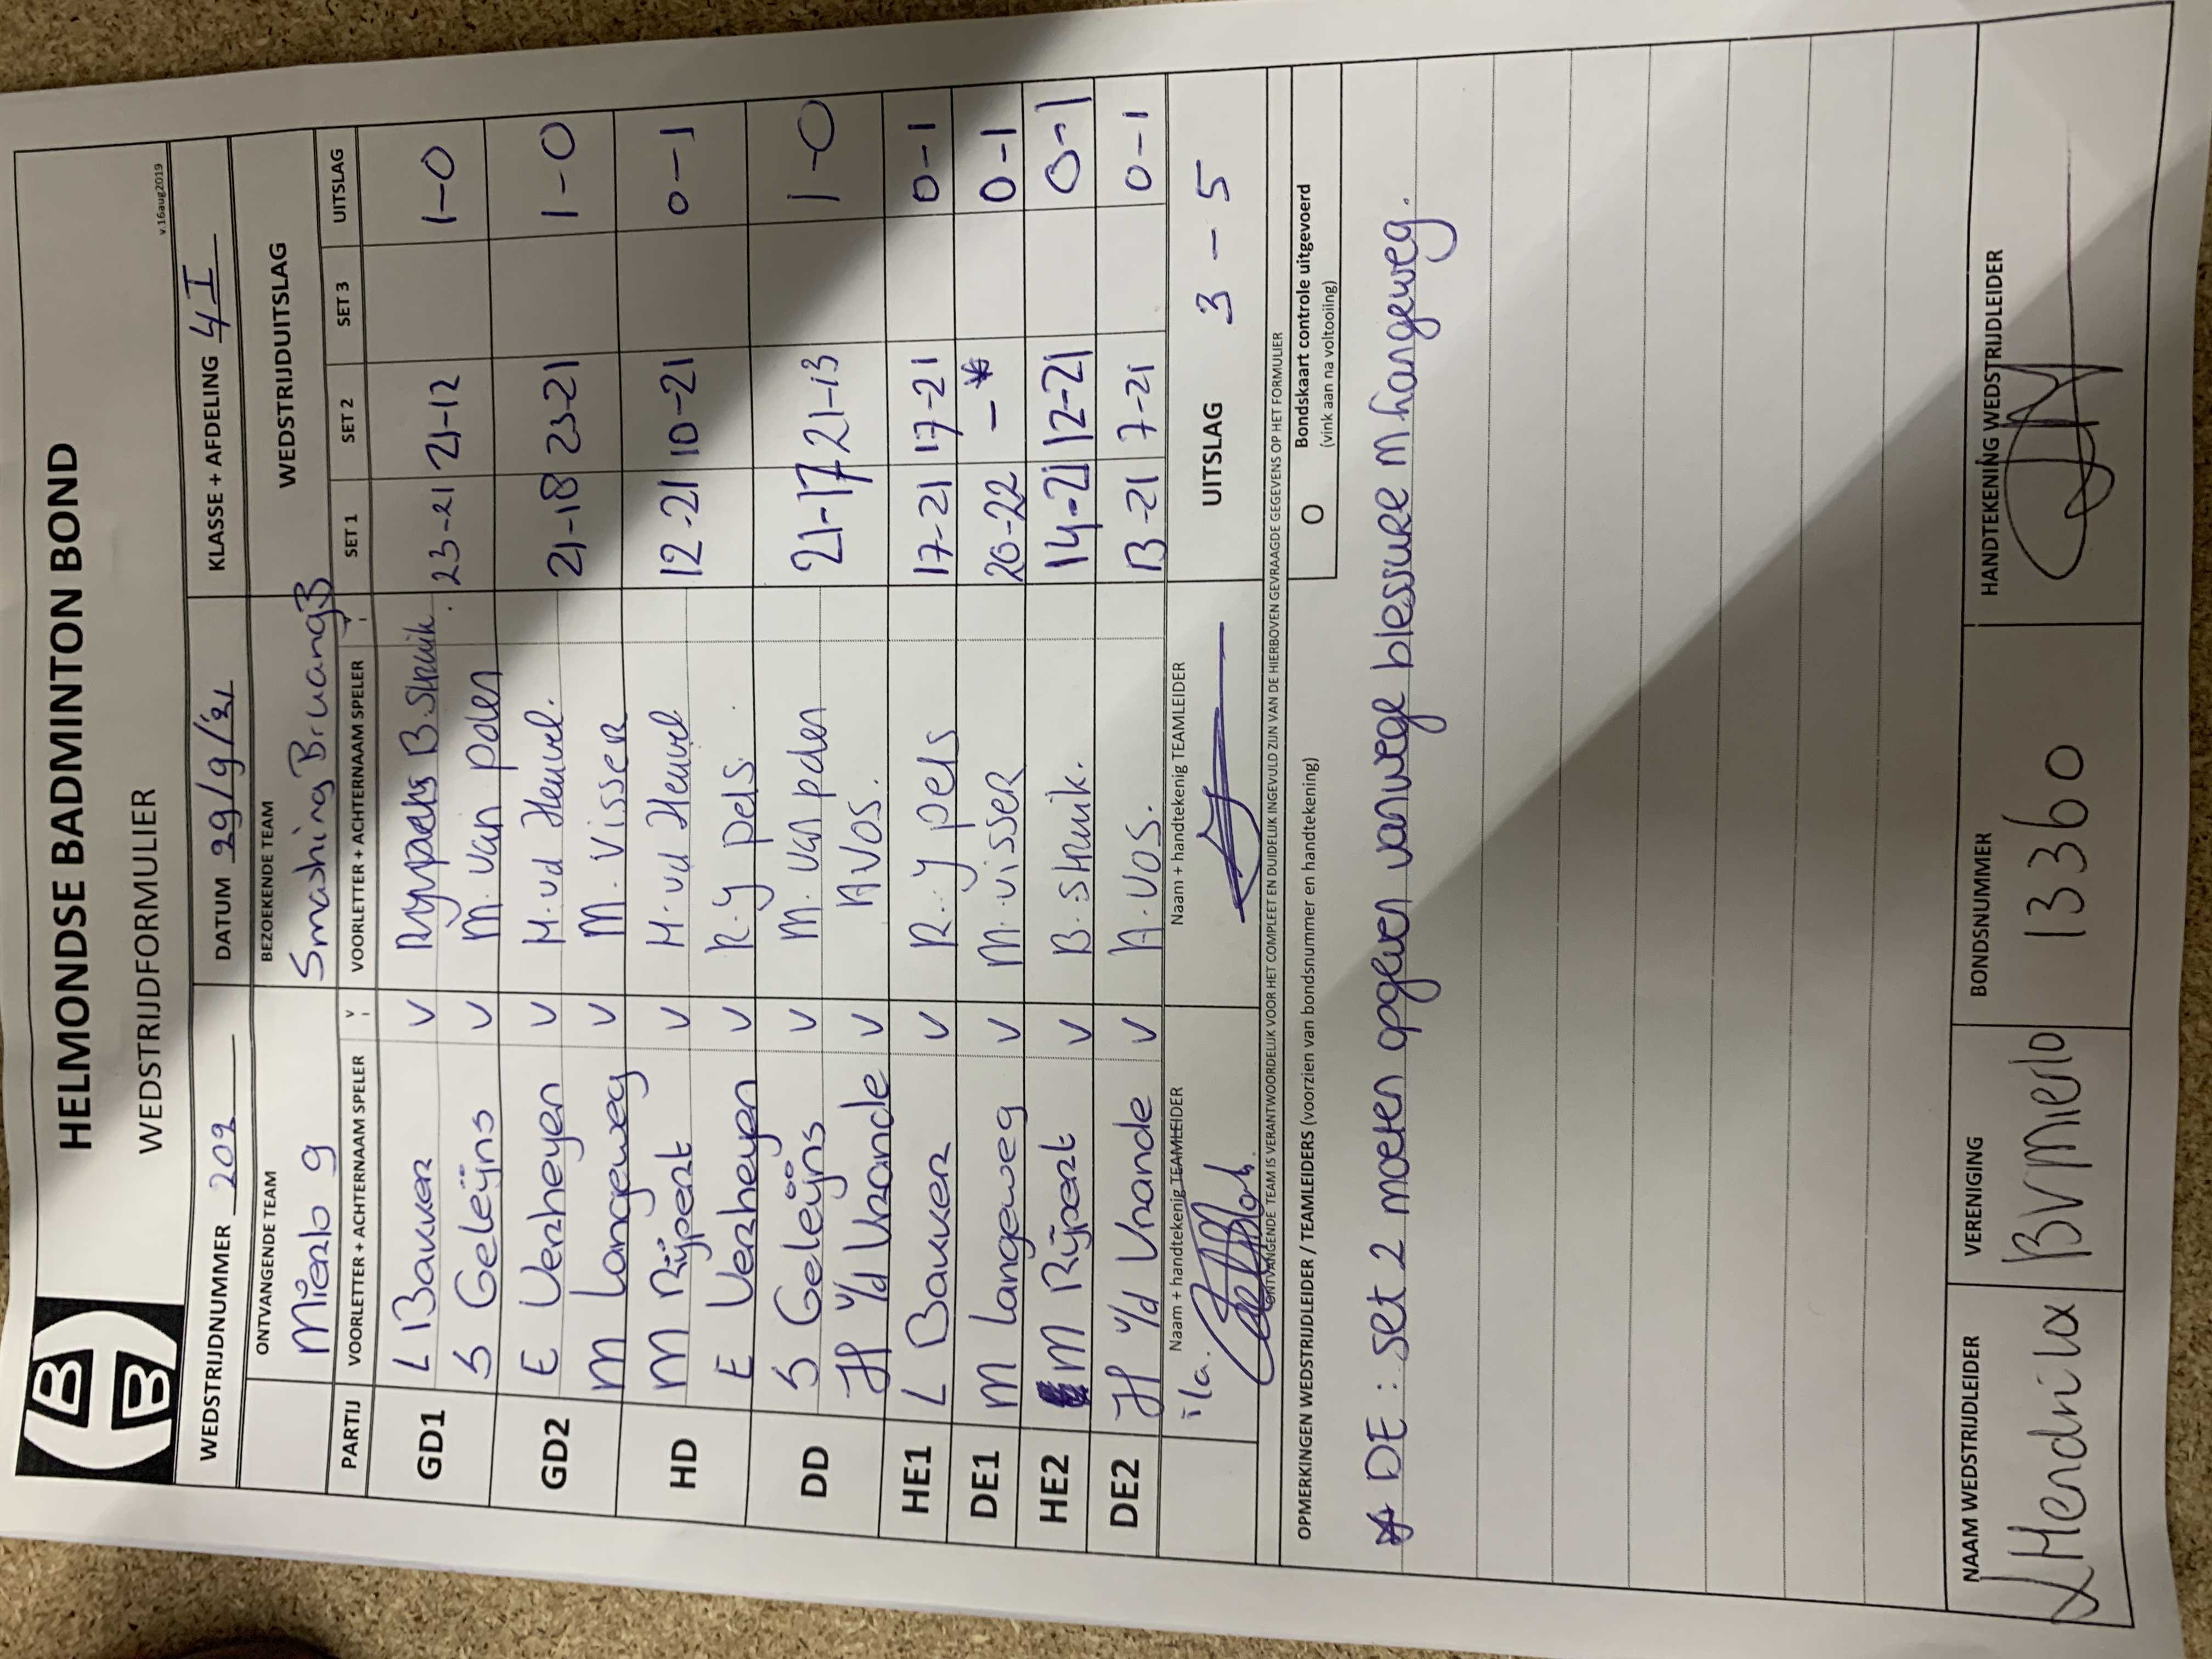 HELMONDSE BADMINTON BOND
WEDSTRIJDFORMULIER
v.16aug2019
WEDSTRIJDNUMMER 209 DATUM 29/9/'21 KLASSE + AFDELING 4I
ONTVANGENDE TEAM BEZOEKENDE TEAM WEDSTRIJDUITSLAG
Mierlo 9 Smashing Bruang3
PARTIJ VOORLETTER + ACHTERNAAM SPELER V VOORLETTER + ACHTERNAAM SPELER V SET 1 SET 2 SET 3 UITSLAG
GD1 L Bakker V B. Struik. 23-21 21-12 1-0
S Geleijns V M. van palen
GD2 E Verheyen V H. vd Heuvel. 21-18 23-21 1-0
M Langeweg V M. Visser
HD M Rijpert V H. vd Heuvel 12-21 10-21 0-1
E Verheyen V R. ypels.
DD S Geleijns V M. van palen 21-17 21-13 1-0
H v/d Vrande V A VOS.
HE1 L Bakker V R. ypels 17-21 17-21 0-1
DE1 M Langeweg V M. visser 20-22 - * 0-1
HE2 M Rijpert V B. Struik. 14-21 12-21 0-1
DE2 H v/d Vrande V A. VOS. 13-21 7-21 0-1
Naam + handtekenig TEAMLEIDER Naam + handtekenig TEAMLEIDER UITSLAG 3 - 5
i/a.
ONTVANGENDE TEAM IS VERANTWOORDELIJK VOOR HET COMPLEET EN DUIDELIJK INGEVULD ZIJN VAN DE HIERBOVEN GEVRAAGDE GEGEVENS OP HET FORMULIER
OPMERKINGEN WEDSTRIJDLEIDER / TEAMLEIDERS (voorzien van bondsnummer en handtekening) O Bondskaart controle uitgevoerd
(vink aan na voltooiing)
* DE: set 2 moeten opgeven vanwege blessure M. Langeweg.
NAAM WEDSTRIJDLEIDER VERENIGING BONDSNUMMER HANDTEKENING WEDSTRIJDLEIDER
L Hendrikx BV Mierlo 13360